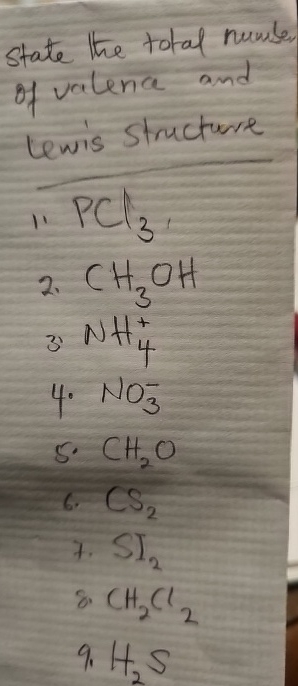 state the total number
of valence and
Lewis structure
1. PCl₃.
2. CH₃OH
3. NH₄⁺
4. NO₃⁻
5. CH₂O
6. CS₂
7. SI₂
8. CH₂Cl₂
9. H₂S